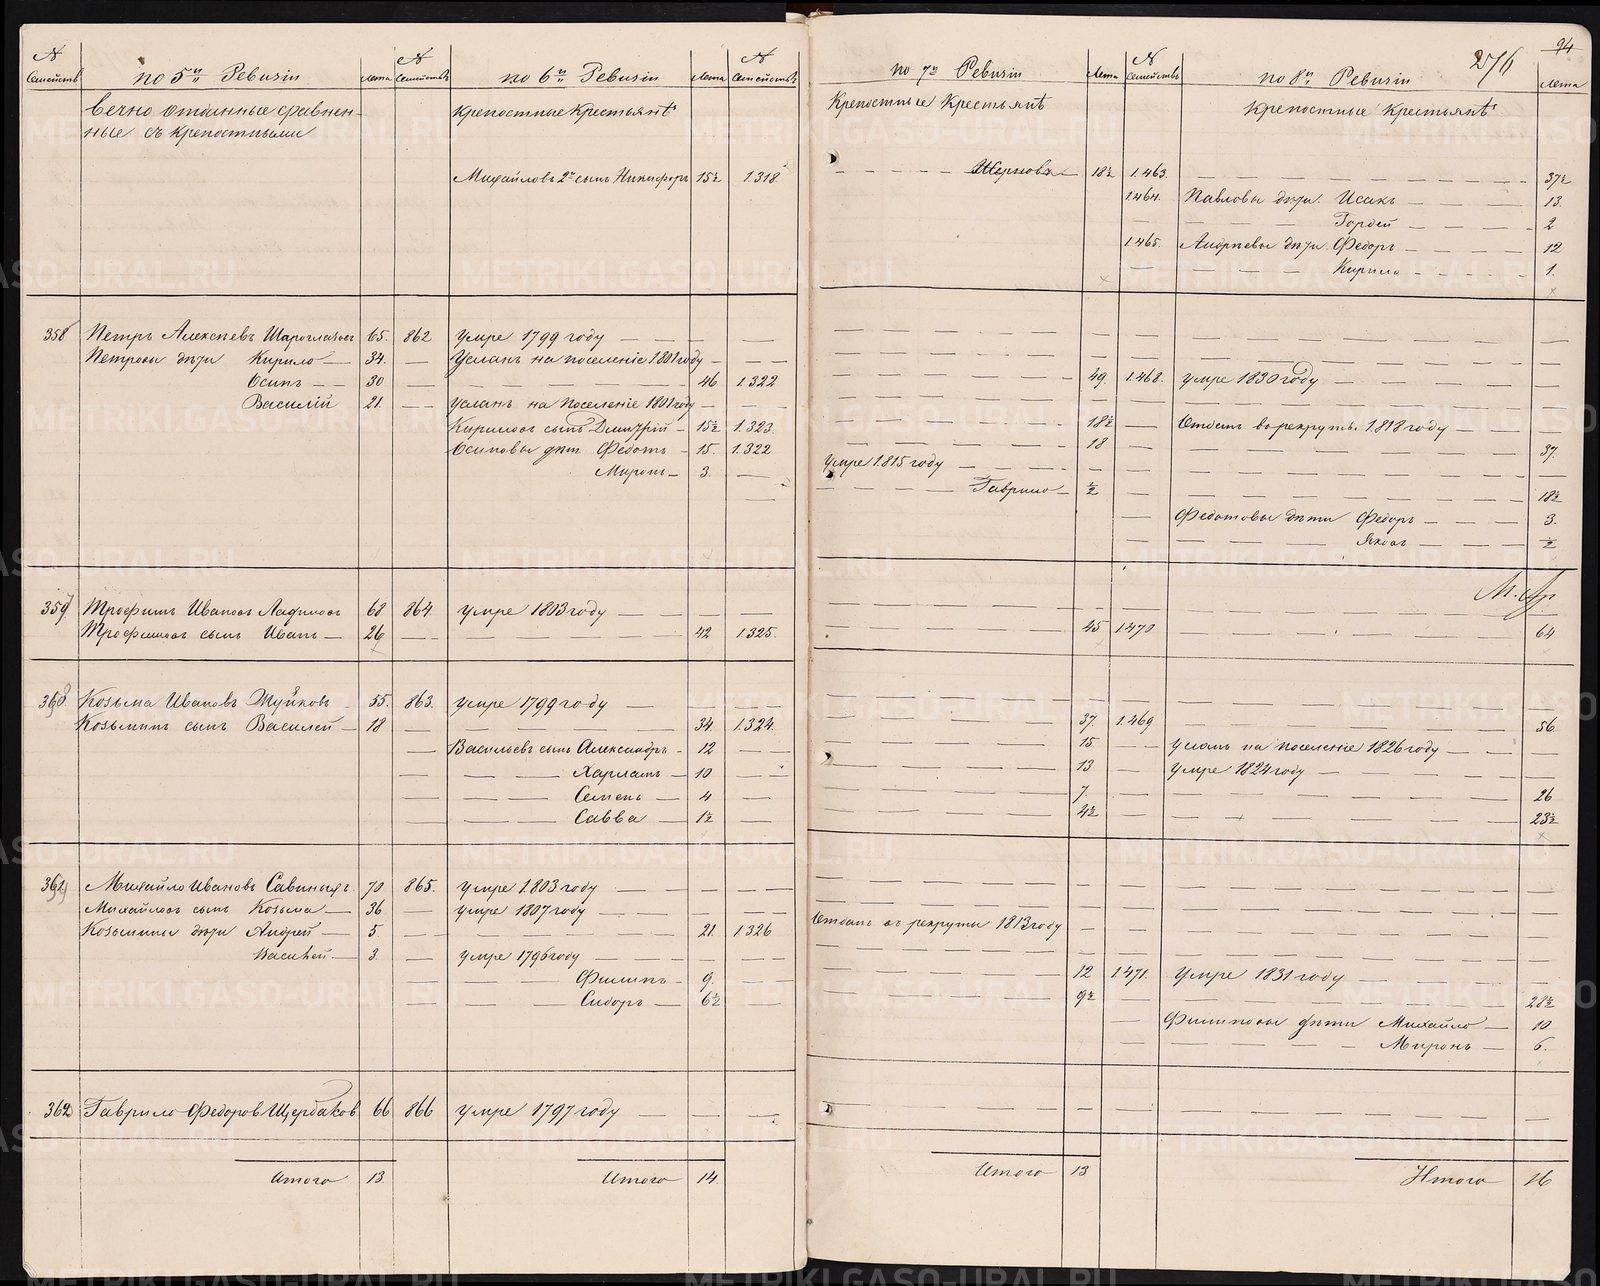 № Семействъ по 5й Ревизіи Лета № Семействъ по 6й Ревизіи Лета № Семействъ
Вечно отданные сравнен-
ные съ крепостными
Крепостные Крестьянѣ
Михайловъ 2й сынъ Никифоръ 15½ 1318
358 Петръ Алексѣевъ 65. 862 умре 1799 году
Петровы дѣти Кирило 34. Усланъ на поселеніе 1801 году
Осипъ 30 46 1322
Василій 21. усланъ на поселеніе 1801 году
Кириловъ сынъ Дмитрій 15½ 1323.
Осиповы дѣти Федотъ 15. 1322
Миронъ 3.
359 Трофимъ Ивановъ Ладыговъ 68 864 умре 1803 году
Трофимовъ сынъ Иванъ 26 42 1325.
360 Козьма Ивановъ Шуйковъ 55. 863. умре 1799 году
Козьминъ сынъ Василей 18 34. 1324.
Васильевъ сынъ Александръ 12
Харламъ 10
Семенъ 4
Савва 1½
361 Михайло Ивановъ Савиныхъ 70 865. умре 1803 году
Михайловъ сынъ Козьма 36 умре 1807 году
Козьмины дѣти Андрей 5 21. 1326
Василей 3. умре 1796 году
Филипъ 9.
Сидоръ 6½
362 Гаврило Федоровъ Щербаковъ 66 866 умре 1797 году
Итого 13 Итого 14
94
276
по 7й Ревизіи Лета № Семействъ по 8й Ревизіи Лета
Крепостные Крестьянѣ Крепостные Крестьянѣ
18½ 1463. 37½
1464. Павловы дѣти Исакъ 13.
Гордей 2
1465. Андреевы дѣти Федоръ 12
Кирило 1.
49. 1468. умре 1830 году
18½ Отданъ въ рекруты 1818 году
18 37.
умре 1815 году
Гаврило ½ 18½
Федотовы дѣти Федоръ 3.
Яковъ ½
45 1470 64
37. 1469 56
15 усланъ на поселеніе 1826 году
13 умре 1824 году
7. 26
4½ 23½
Отданъ въ рекруты 1813 году
12 1471. умре 1831 году
9½ 28½
Филиповы дѣти Михайло 10
Миронъ 6.
Итого 13 Итого 16
METRIKI.GASO-URAL.RU